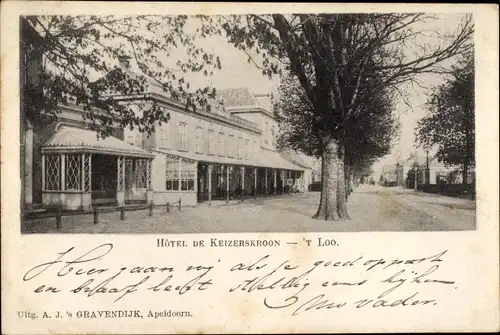 HÔTEL DE KEIZERSKROON — 'T LOO.
Hier gaan wij als je goed oppast
en braaf leert stellig eens kijken.
Uw vader.
Uitg. A. J. 's GRAVENDIJK, Apeldoorn.